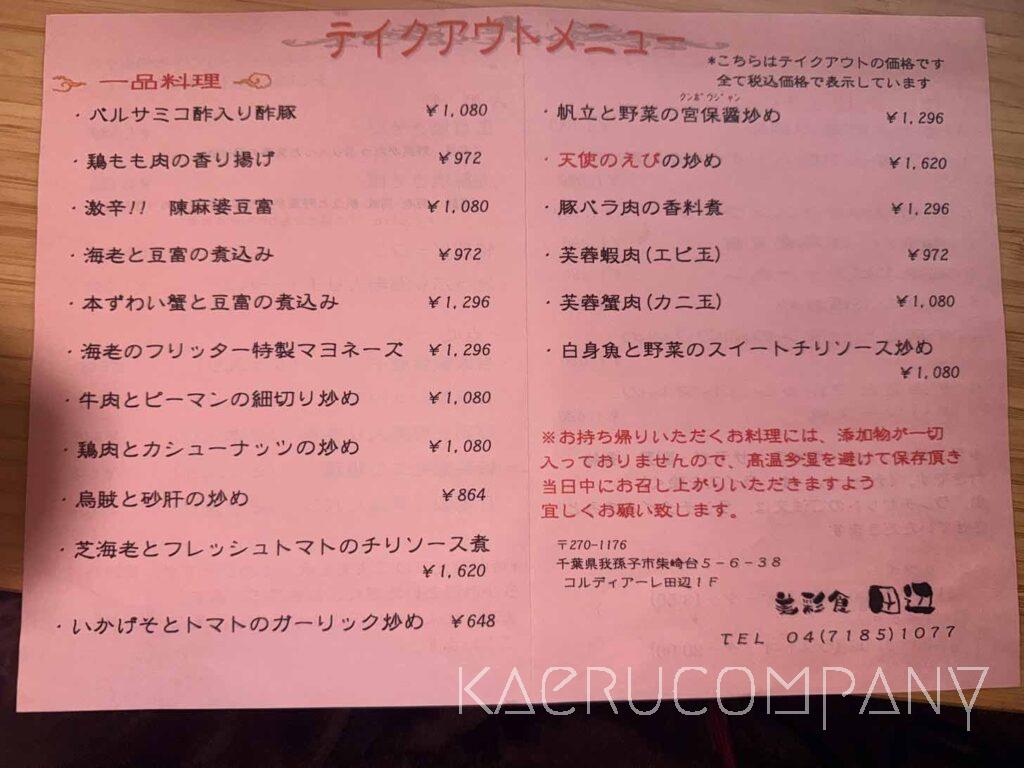 テイクアウトメニュー
*こちらはテイクアウトの価格です
全て税込価格で表示しています
一品料理
・バルサミコ酢入り酢豚 ¥1,080
・鶏もも肉の香り揚げ ¥972
・激辛!! 陳麻婆豆富 ¥1,080
・海老と豆富の煮込み ¥972
・本ずわい蟹と豆富の煮込み ¥1,296
・海老のフリッター特製マヨネーズ ¥1,296
・牛肉とピーマンの細切り炒め ¥1,080
・鶏肉とカシューナッツの炒め ¥1,080
・烏賊と砂肝の炒め ¥864
・芝海老とフレッシュトマトのチリソース煮
¥1,620
・いかげそとトマトのガーリック炒め ¥648
クンポウジャン
・帆立と野菜の宮保醤炒め ¥1,296
・天使のえびの炒め ¥1,620
・豚バラ肉の香料煮 ¥1,296
・芙蓉蝦肉(エビ玉) ¥972
・芙蓉蟹肉(カニ玉) ¥1,080
・白身魚と野菜のスイートチリソース炒め
¥1,080
※お持ち帰りいただくお料理には、添加物が一切
入っておりませんので、高温多湿を避けて保存頂き
当日中にお召し上がりいただきますよう
宜しくお願い致します。
〒270-1176
千葉県我孫子市柴崎台5-6-38
コルディアーレ田辺1F
美彩食 田辺
TEL 04(7185)1077
KAERUCOMPANY